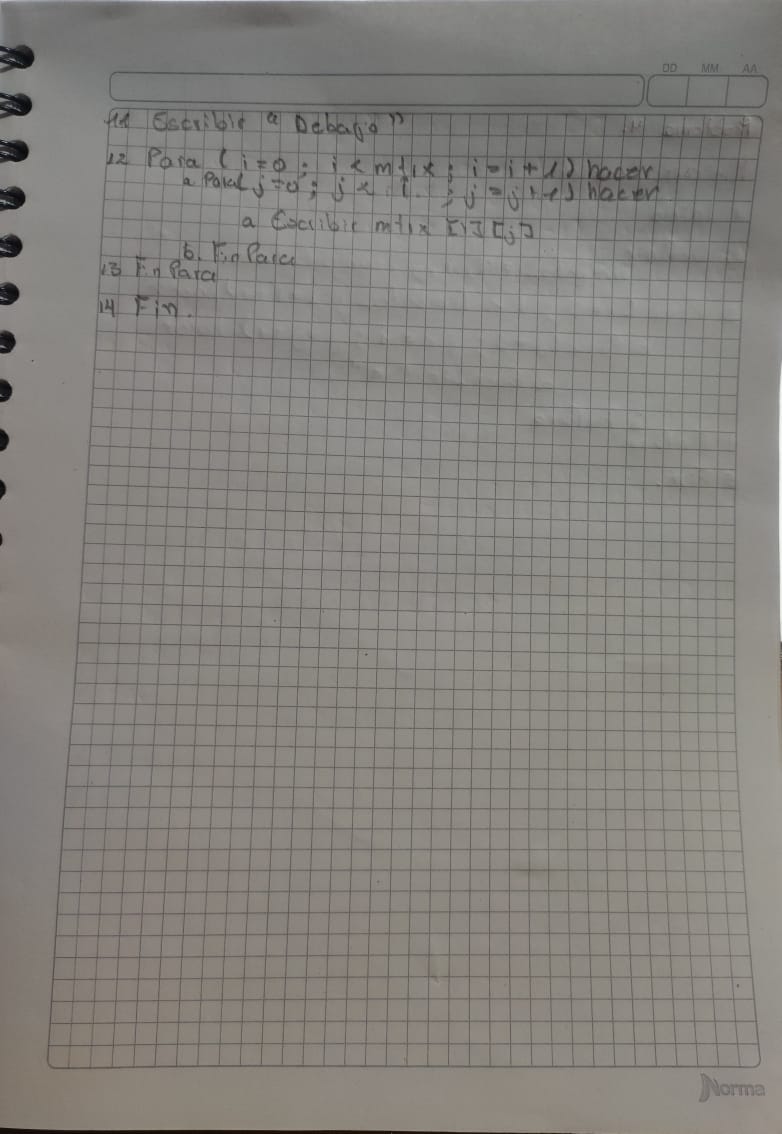 DD MM AA
11 Escribir "Debajo"
12 Para (i=0; i < mtrx; i=i+1) hacer
a Para(j=0; j < i ; j=j+1) hacer
a Escribir mtrx [i][j]
b. Fin Para
13 Fin Para
14 Fin.
Norma